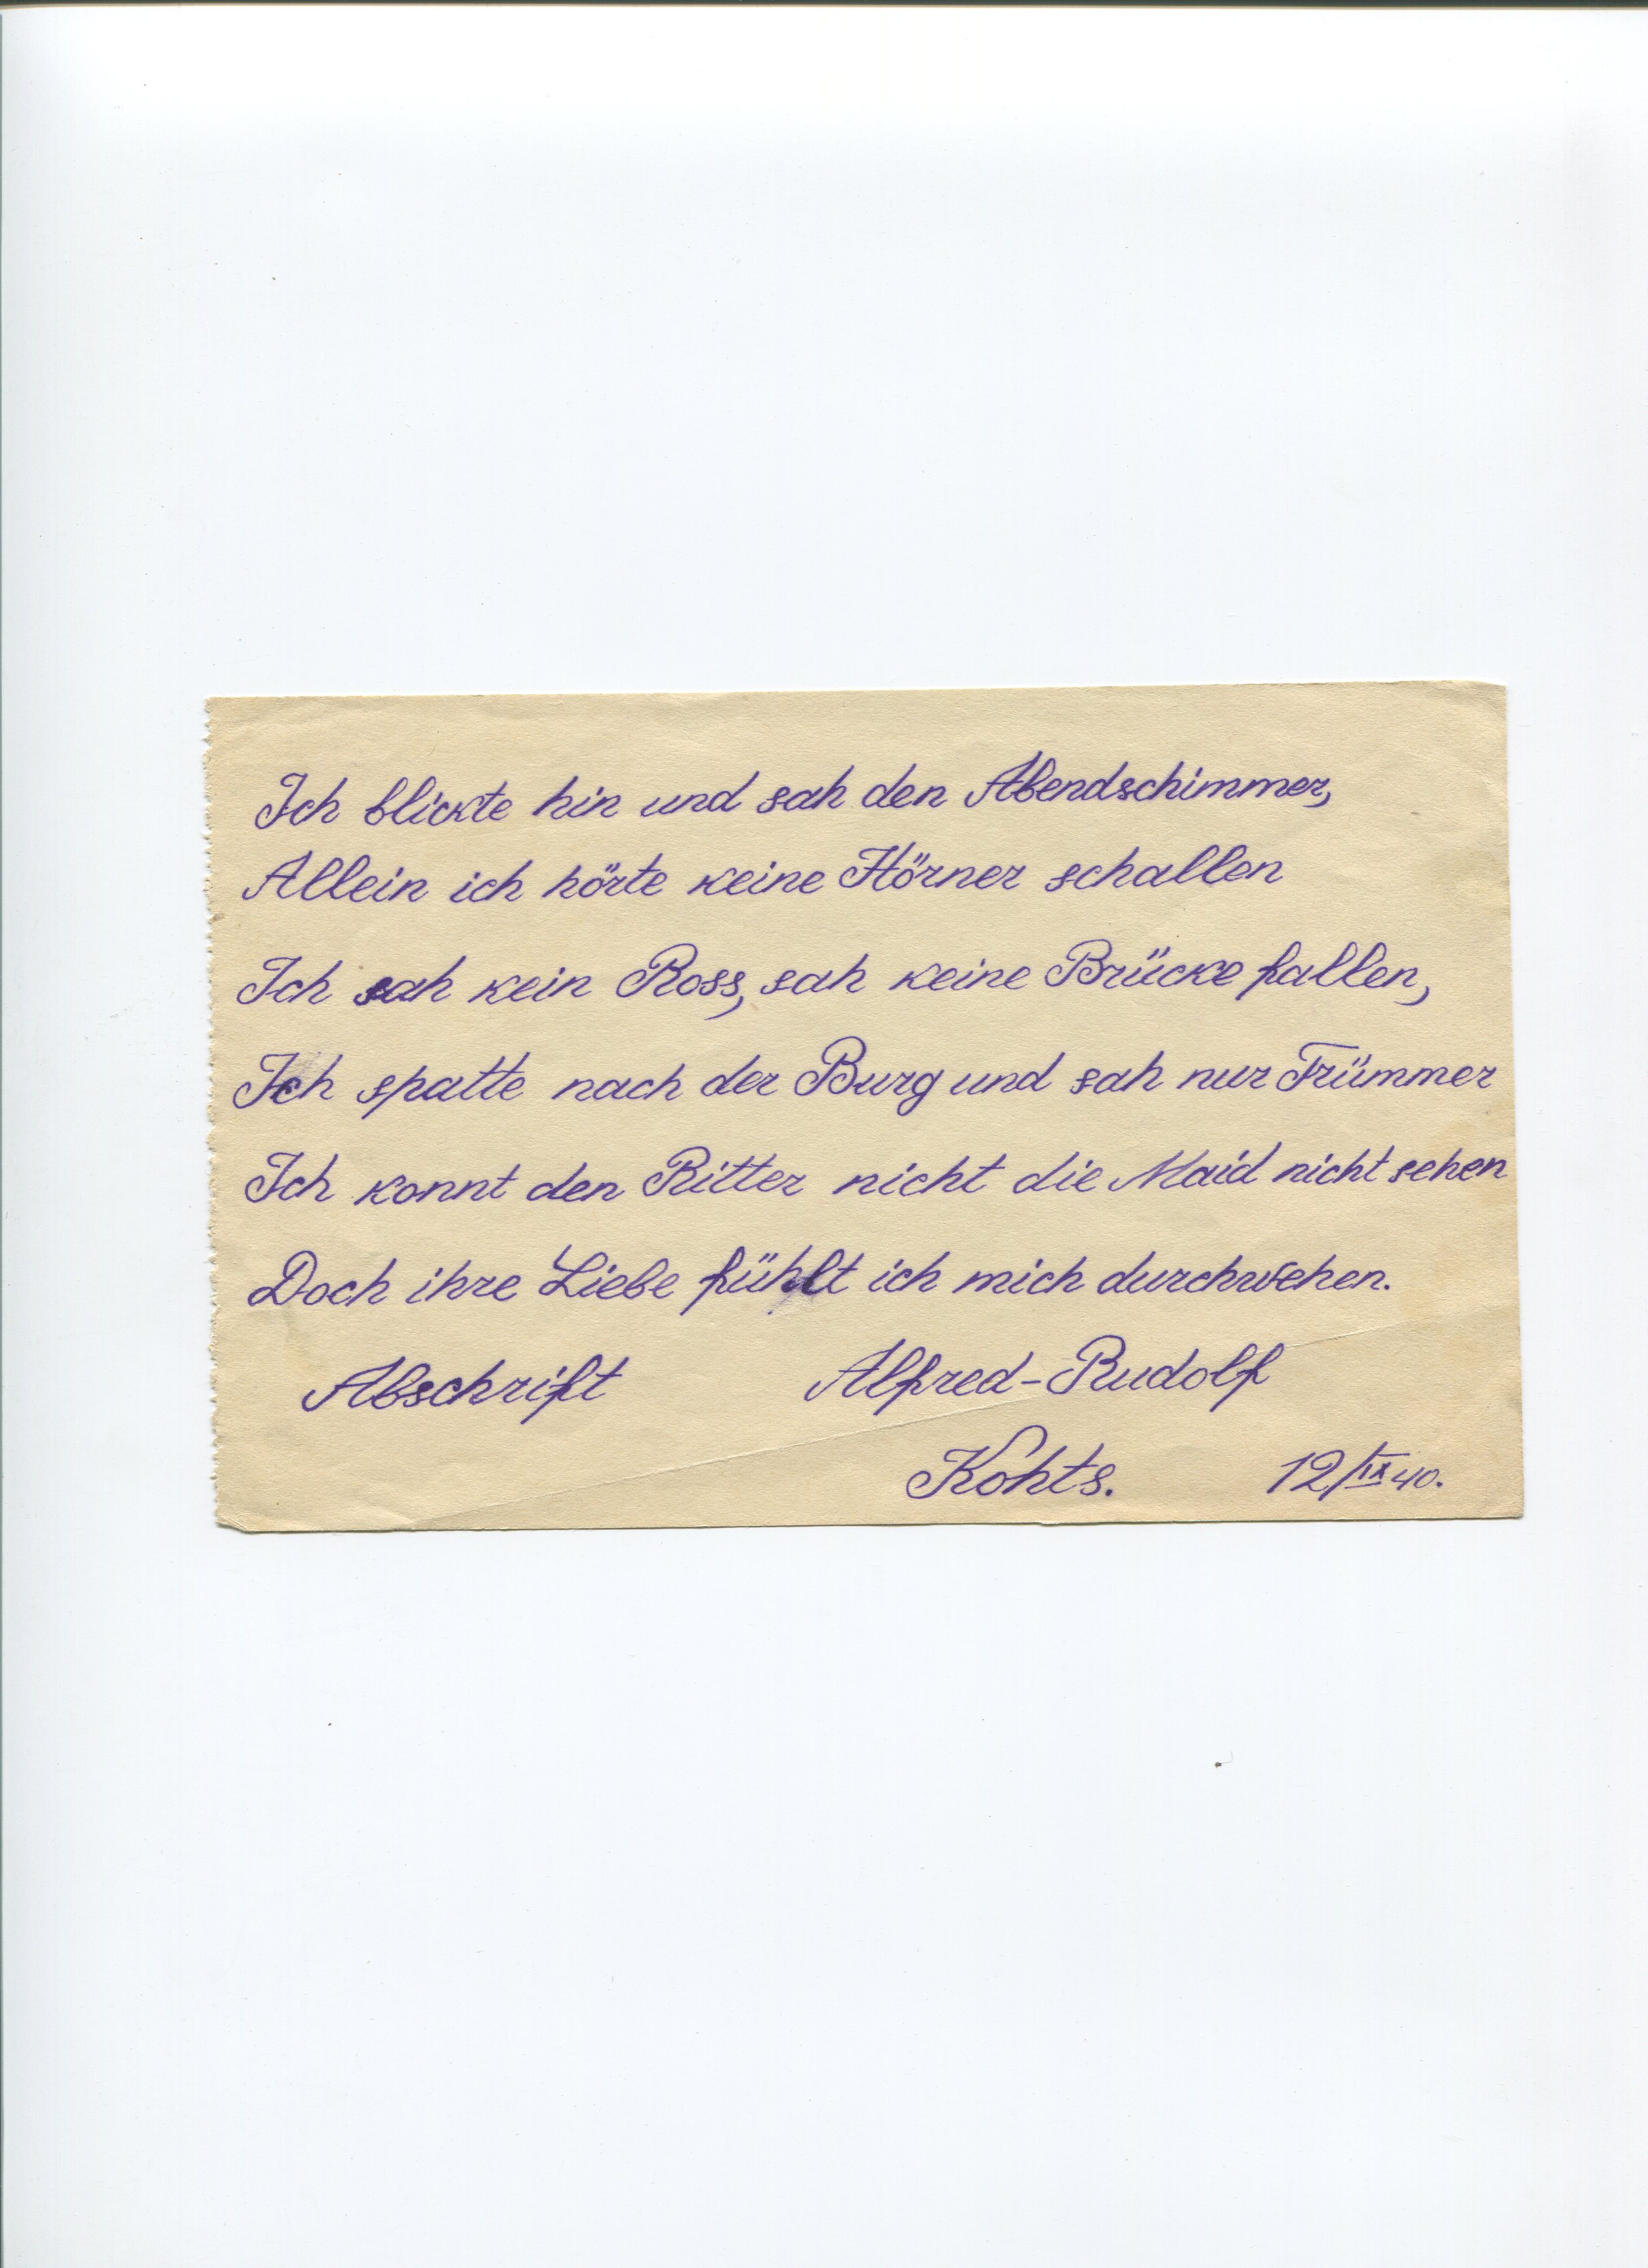 Ich blickte hin und sah den Abendschimmer,
Allein ich hörte keine Hörner schallen
Ich sah kein Ross, sah keine Brücke fallen,
Ich spatte nach der Burg und sah nur Trümmer
Ich konnt den Ritter nicht die Maid nicht sehen
Doch ihre Liebe fühlt ich mich durchwehen.
Abschrift Alfred-Rudolf
Kohts. 12/IX 40.